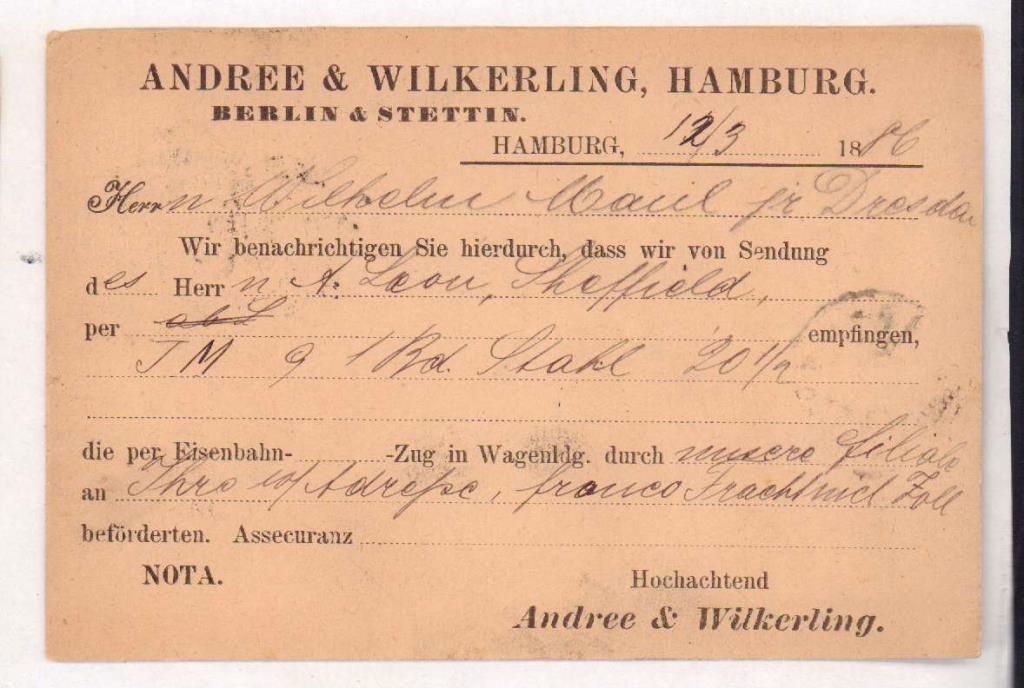 ANDREE & WILKERLING, HAMBURG.
BERLIN & STETTIN.
HAMBURG, 12/3 1886
Herrn Wilhelm Maul pr Dresden
Wir benachrichtigen Sie hierdurch, dass wir von Sendung
des Herrn A. Leon, Sheffield,
per empfingen,
JM 9 1 Bd. Stahl 20 1/2
die per Eisenbahn- -Zug in Wagenldg. durch unsere Filiale
an Ihre Adreße, franco Fracht und Zoll
beförderten. Assecuranz
NOTA. Hochachtend
Andree & Wilkerling.